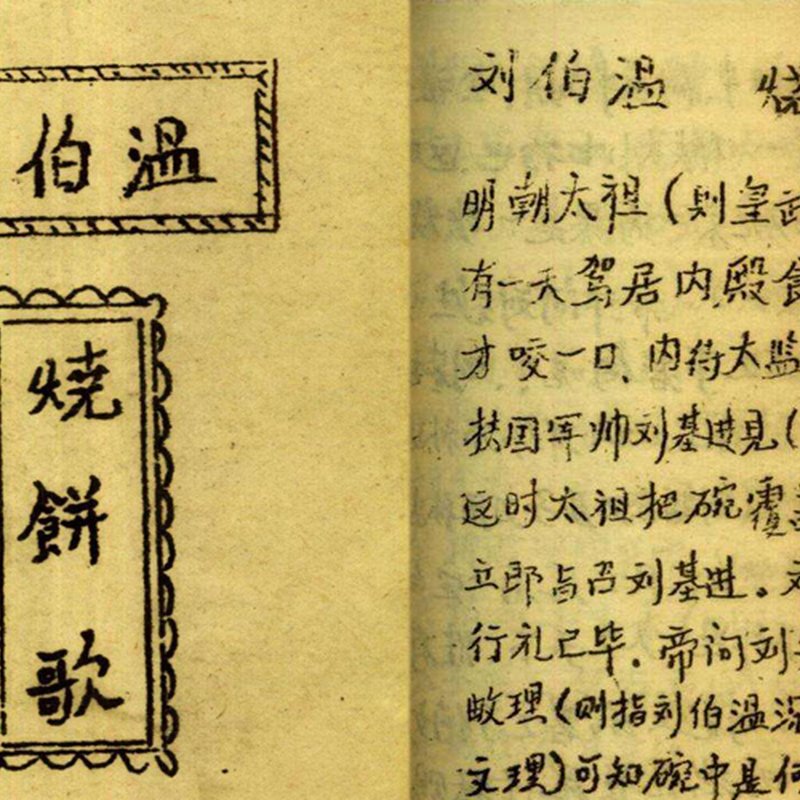 伯温
烧
餅
歌
刘伯温 烧
明朝太祖(则皇武
有一天驾居内殿食
才咬一口、内侍太监
扶国军帅刘基进見(
这时太祖把碗覆盖
立即与召刘基进。
行礼已毕.帝问刘
理(则指刘伯温深
文理)可知碗中是何